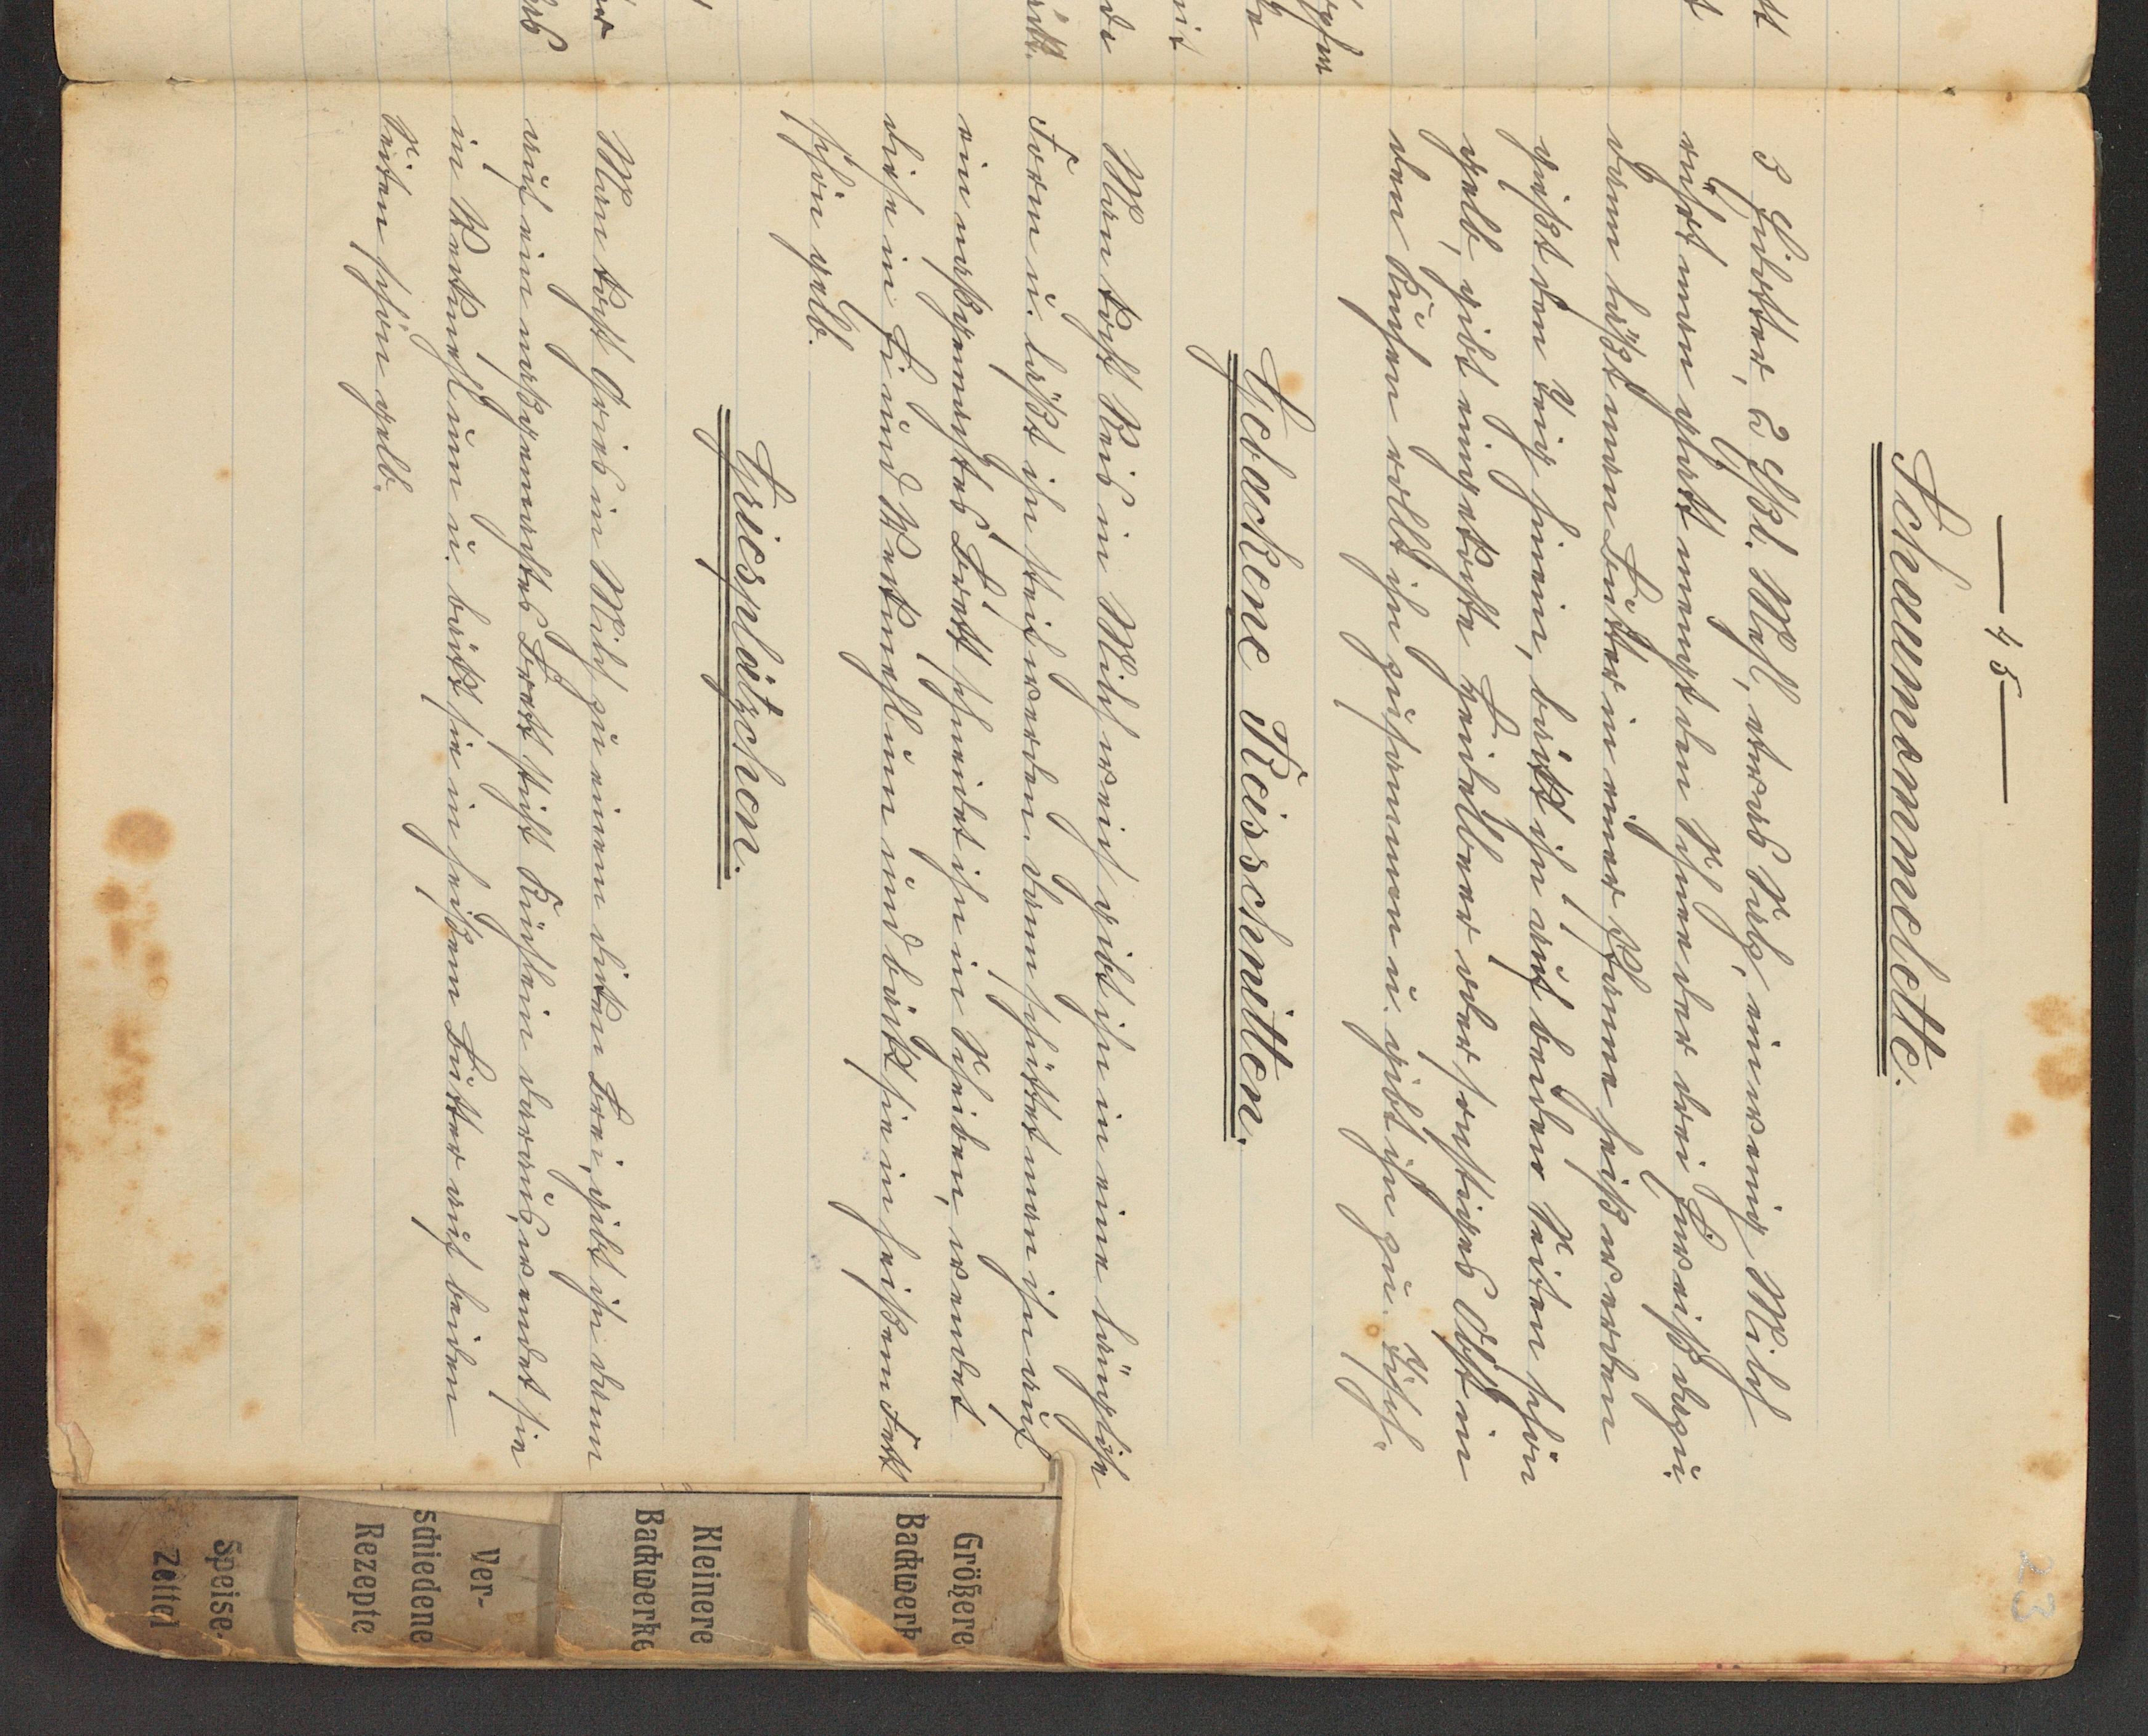 — 45 —
23
Schaumomelette.
3 Eidotter, 2 Eßl. Mehl, etwas Salz, ein wenig Milch
rührt man glatt mengt den Schnee der drei Eiweiß dazu
dann läßt man Butter in einer Pfanne heiß werden
gießt den Teig hinein, bäckt ihn auf beiden Seiten schön
gelb, gibt eingekochte Heidelbeer oder sonstiges Obst in
den Kuchen rollt ihn zusammen u. gibt ihn zu Tisch.
Gebackene Reisschnitten.
Man kocht Reis in Milch weich gibt ihn in eine längliche
Form u. läßt ihn steif werden dann schüttet man ihn auf
ein naßgemachtes Brett schneidet ihn in Scheiben, wendet
diese in Ei und Weckmehl um und bäckt sie in heißem Fett
schön gelb.
Griesplätzchen.
Man kocht Gries in Milch zu einem dicken Brei, gibt ihn dann
auf ein naßgemachtes Brett sticht Küchlein daraus, wendet sie
in Weckmehl um u. bäckt sie in heißem Butter auf beiden
Seiten schön gelb.
Größere
Backwerk
Kleinere
Backwerke
Ver-
schiedene
Rezepte
Speise-
Zettel